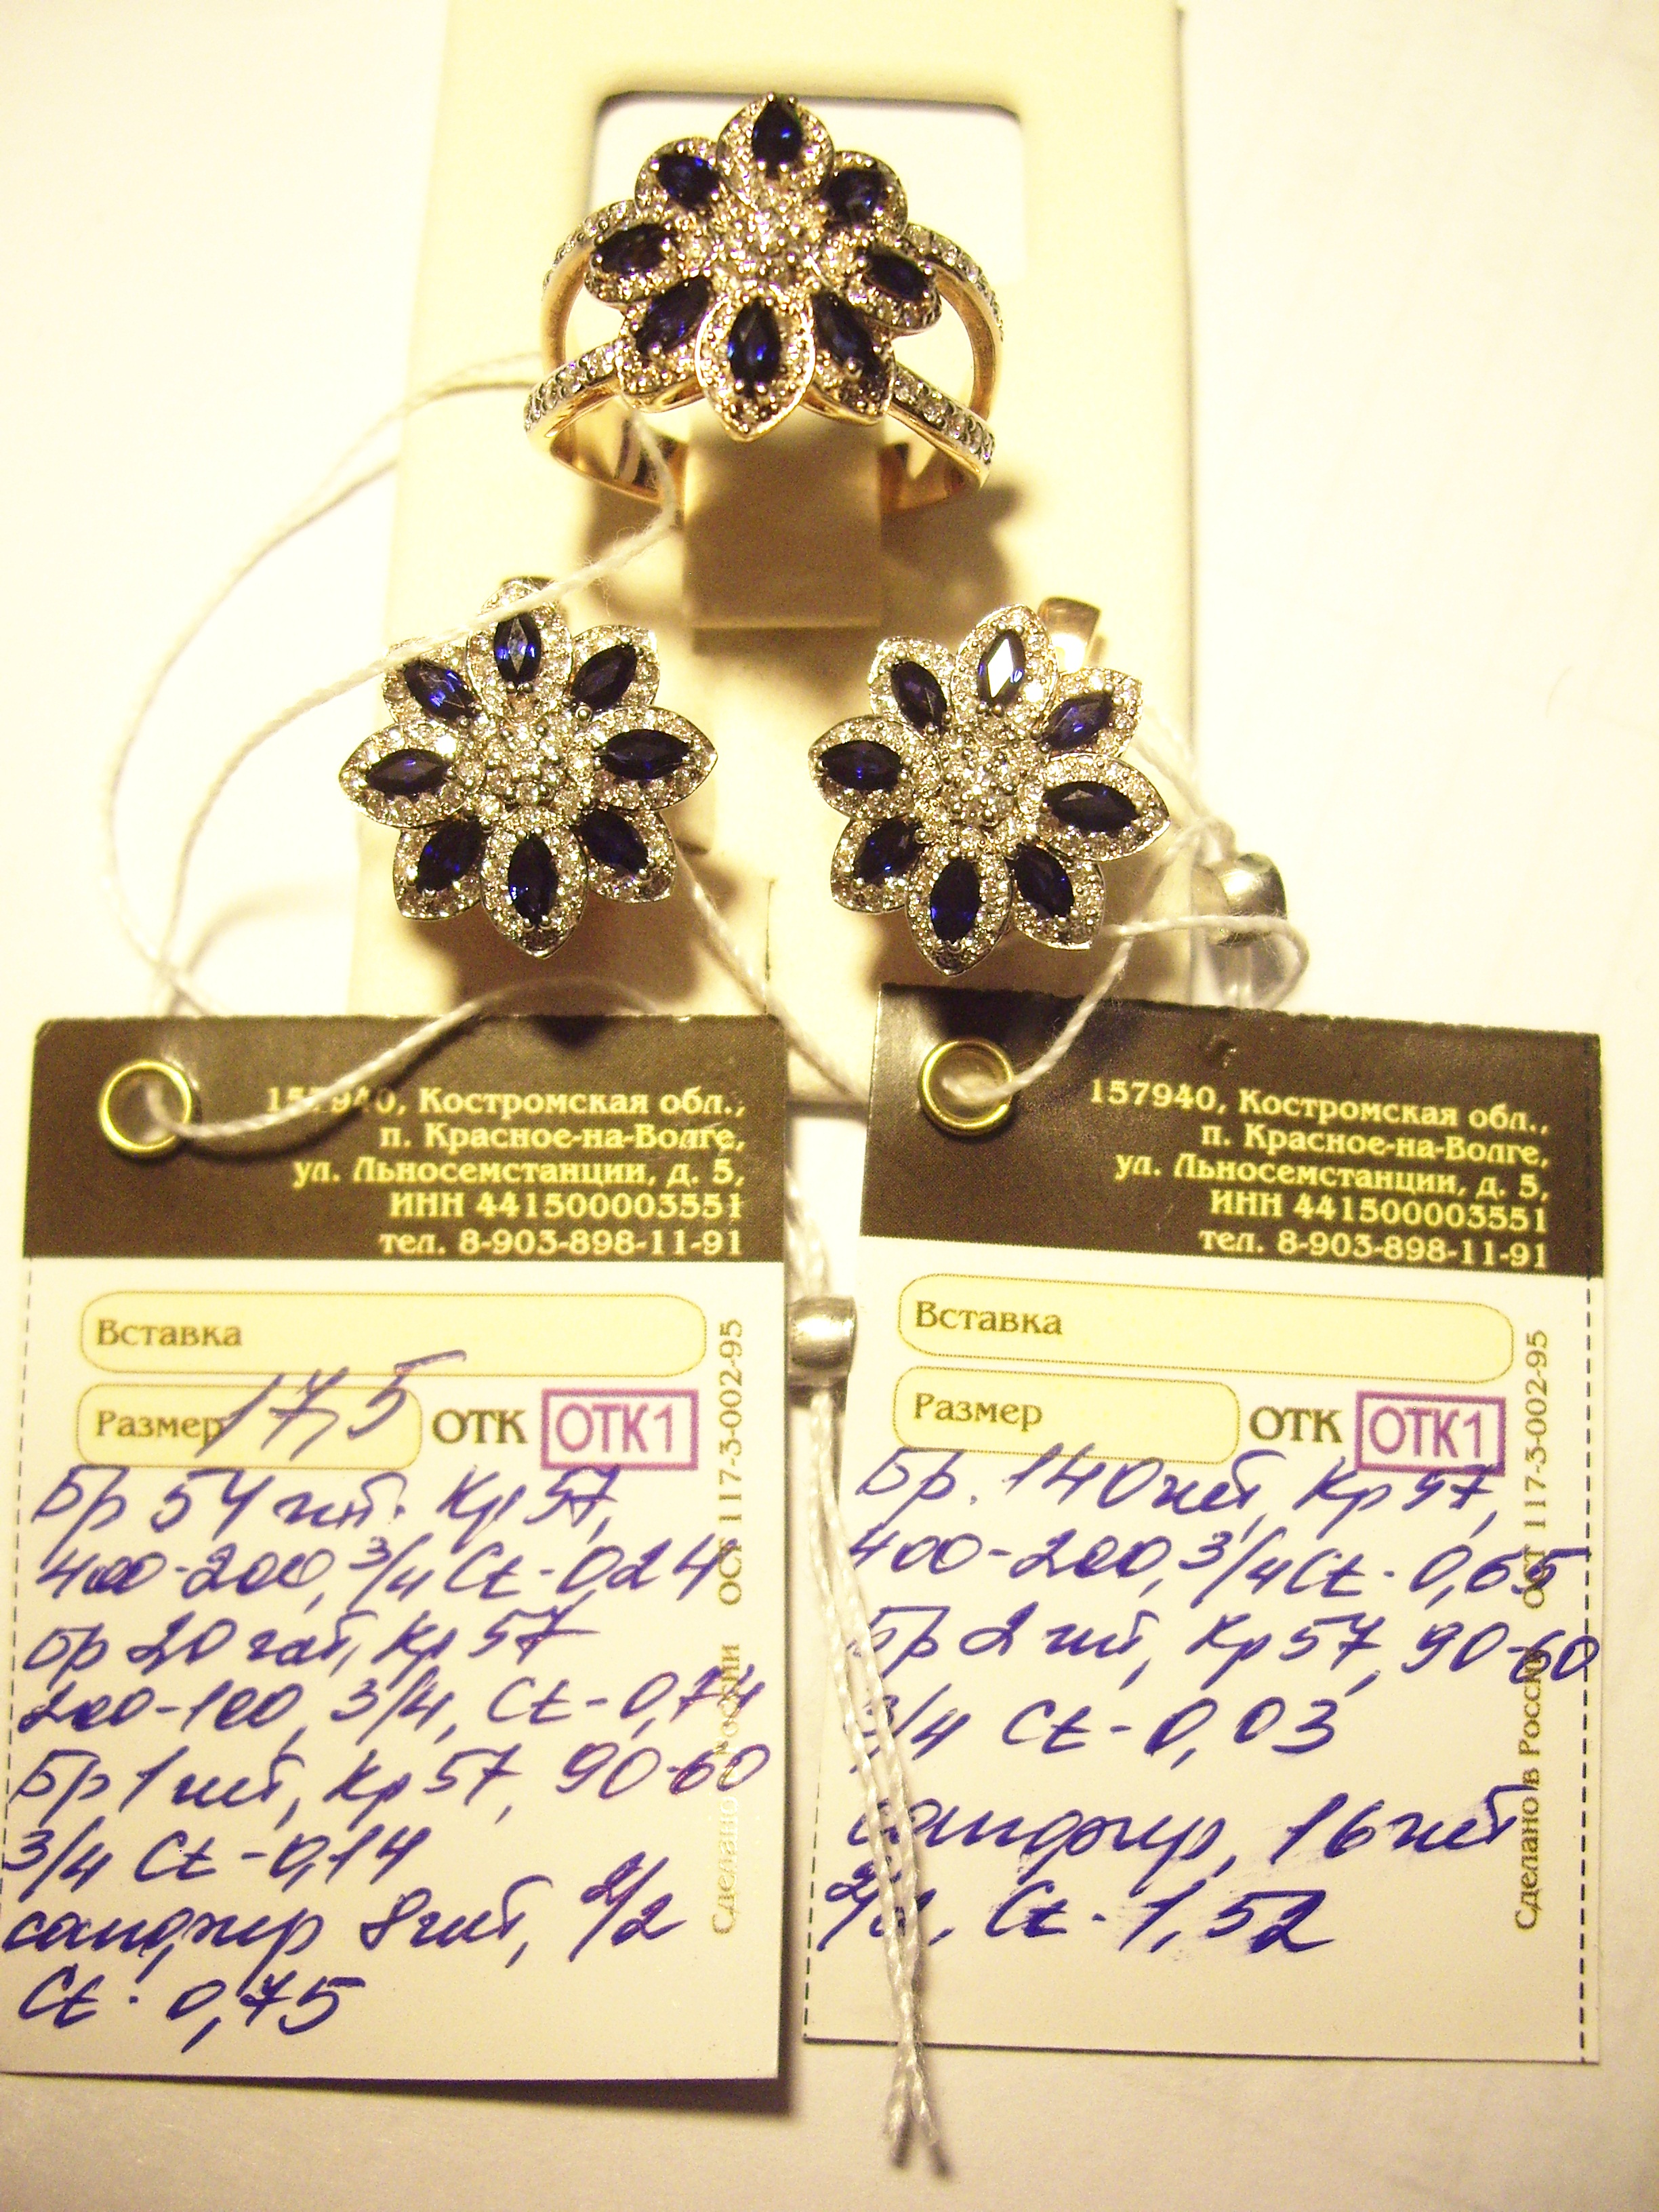 157940, Костромская обл.,
п. Красное-на-Волге,
ул. Льносемстанции, д. 5,
ИНН 441500003551
тел. 8-903-898-11-91
Вставка
Размер 17,5 ОТК ОТК1
Бр 54 шт. Кр 57,
400-200, 3/4 Ct-0,24
Бр 20 шт, Кр 57
200-100, 3/4, Ct-0,
Бр 1 шт, Кр 57, 90-60
3/4 Ct-0,14
сапфир 8шт, 2/2
Ct. 0,75
Сделано в России ОСТ 117-3-002-95
157940, Костромская обл.,
п. Красное-на-Волге,
ул. Льносемстанции, д. 5,
ИНН 441500003551
тел. 8-903-898-11-91
Вставка
Размер ОТК ОТК1
Бр. 140шт, Кр 57,
400-200, 3/4 Ct. 0,65
Бр 2 шт, Кр 57, 90-60
3/4 Ct-0,03
сапфир, 16 шт
Ct. 1,52
Сделано в России ОСТ 117-3-002-95